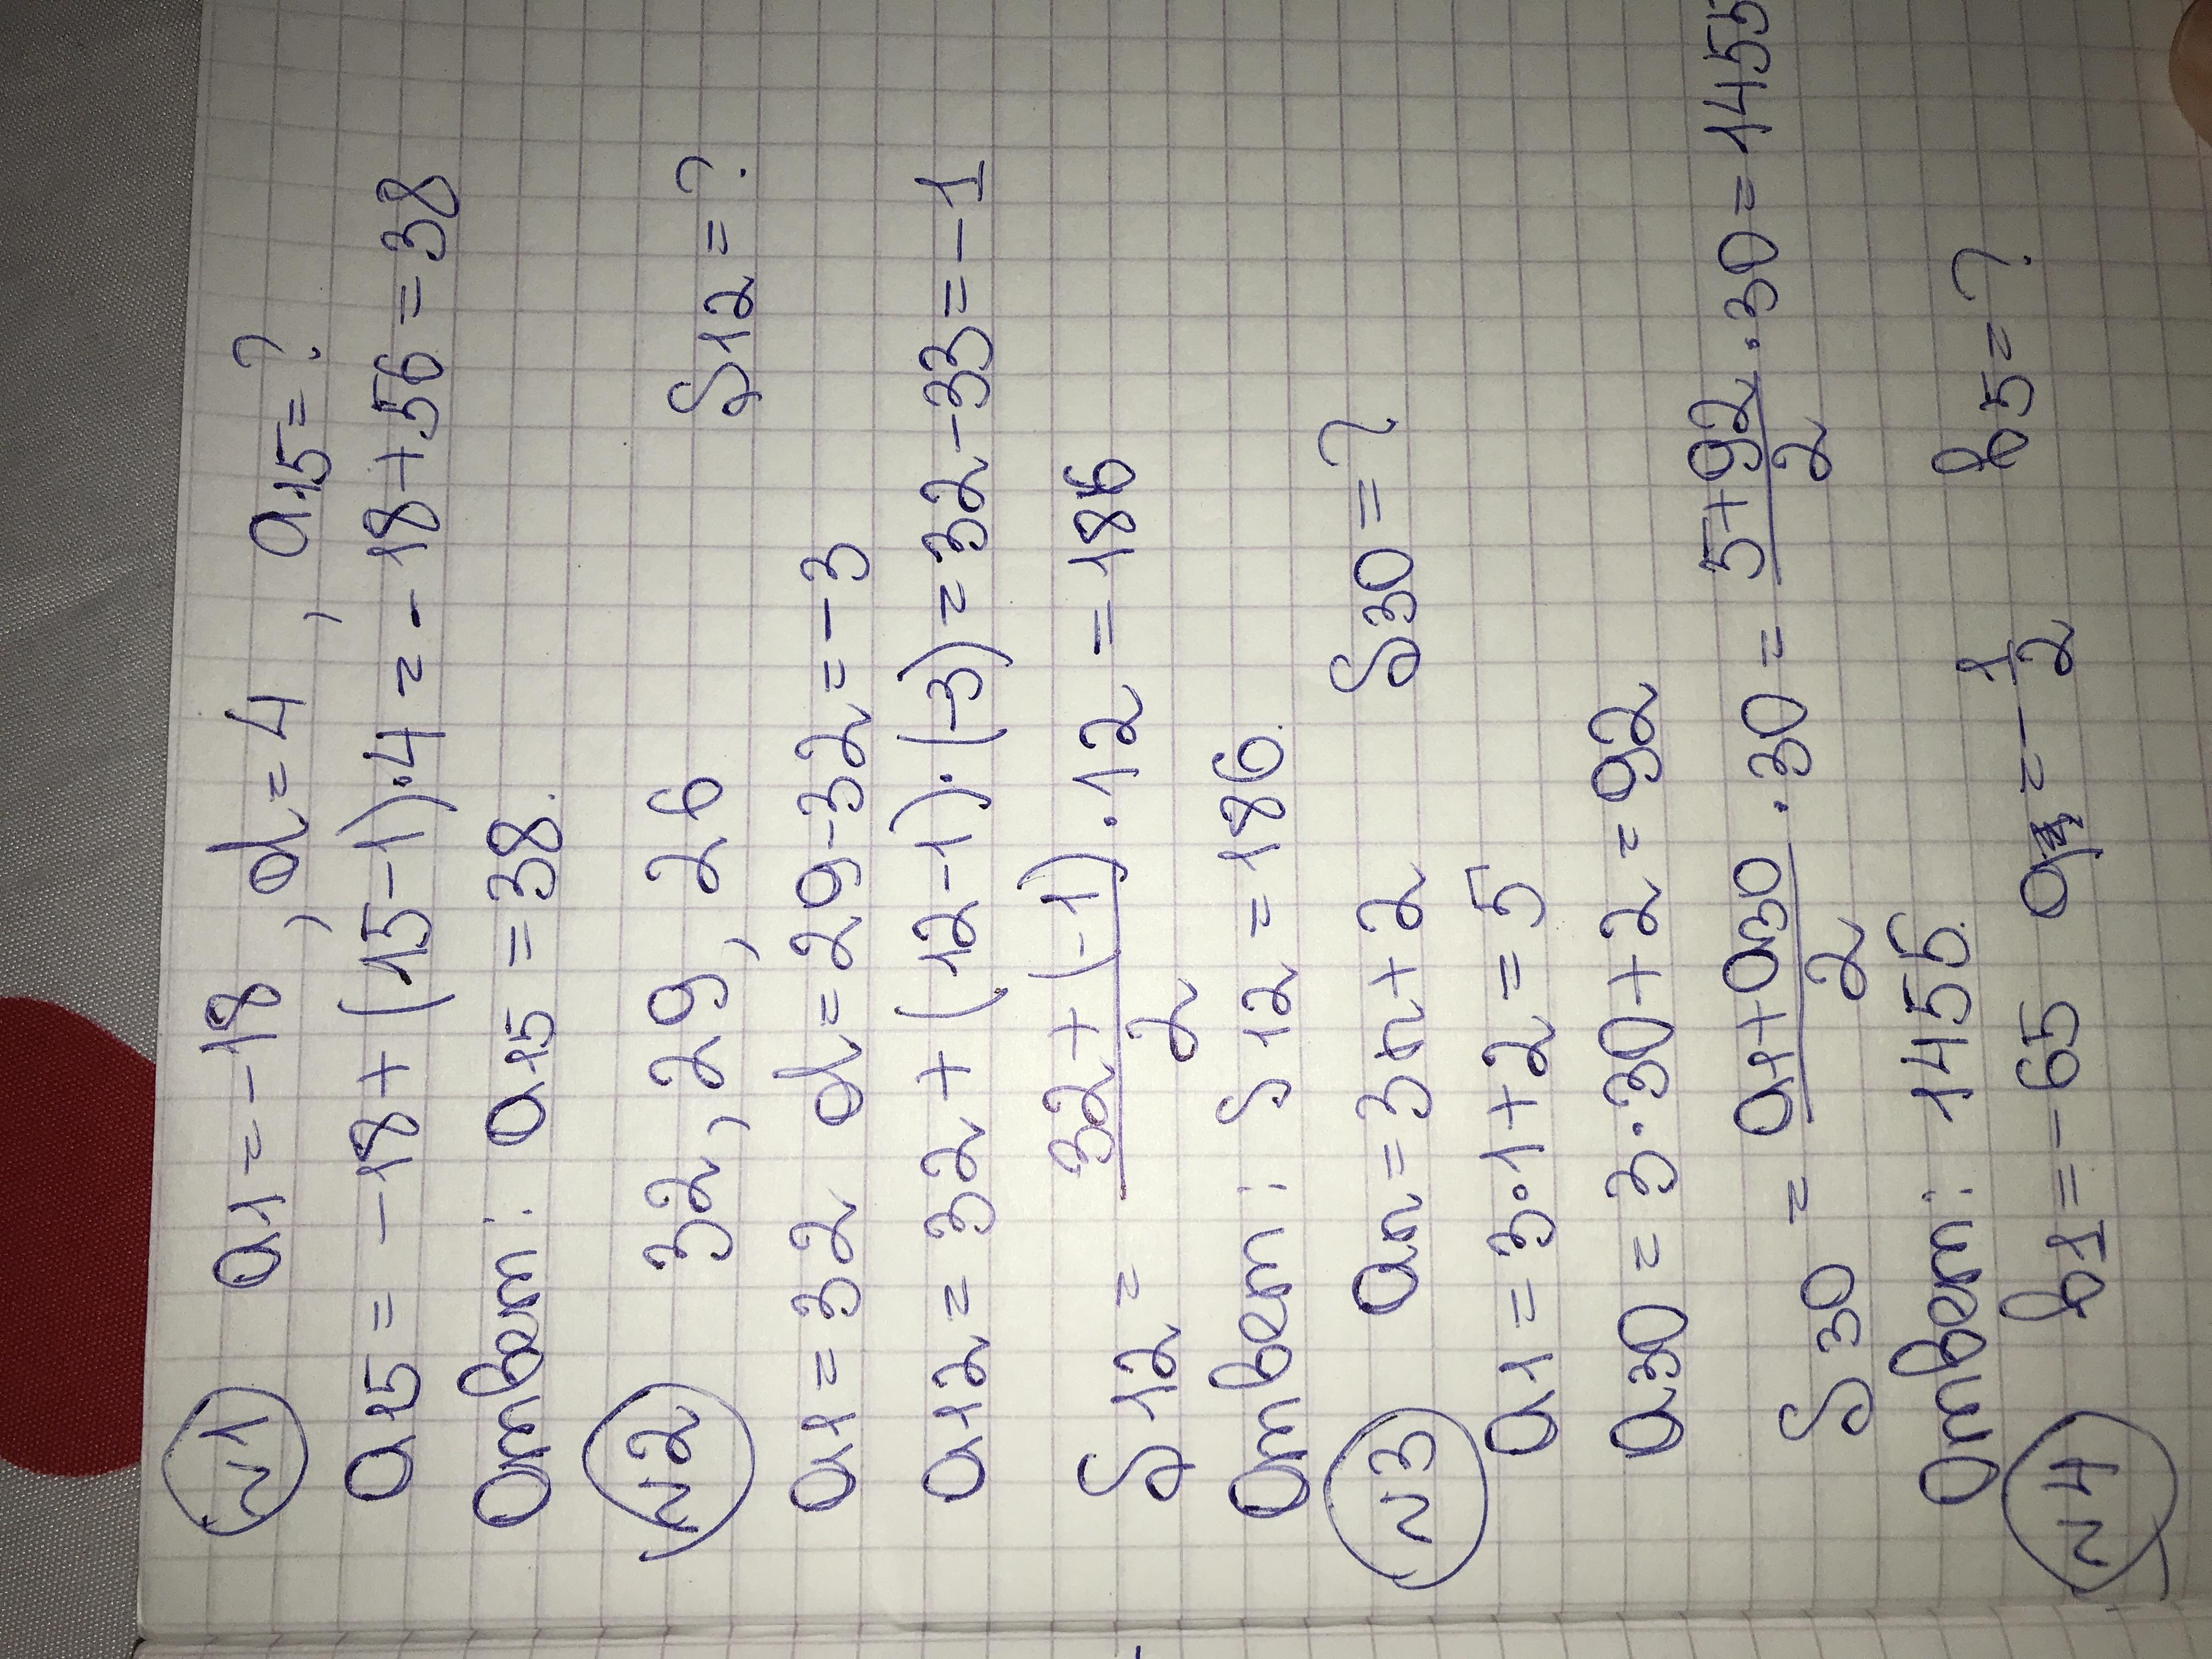 N1 a1=-18, d=4, a15=?
a15=-18+(15-1)·4=-18+56=38
Ответ: a15=38.
N2 32, 29, 26 S12=?
a1=32 d=29-32=-3
a12=32+(12-1)·(-3)=32-33=-1
S12=(32+(-1))/2·12=186
Ответ: S12=186.
N3 an=3n+2 S30=?
a1=3·1+2=5
a30=3·30+2=92
S30=(a1+a30)/2·30=(5+92)/2·30=1455
Ответ: 1455.
N4 b1=-65 q=-1/2 b5=?